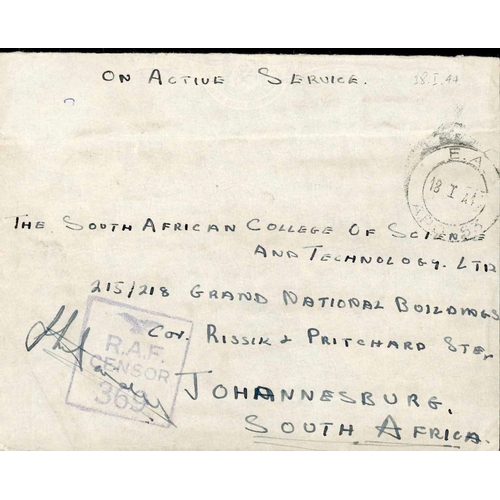 ON ACTIVE SERVICE.
18.I.44
E.A.
18 I
THE SOUTH AFRICAN COLLEGE OF SCIENCE
AND TECHNOLOGY. LTD
215/218 GRAND NATIONAL BUILDINGS
COR. RISSIK & PRITCHARD STS,
JOHANNESBURG,
SOUTH AFRICA.
R.A.F.
CENSOR
369